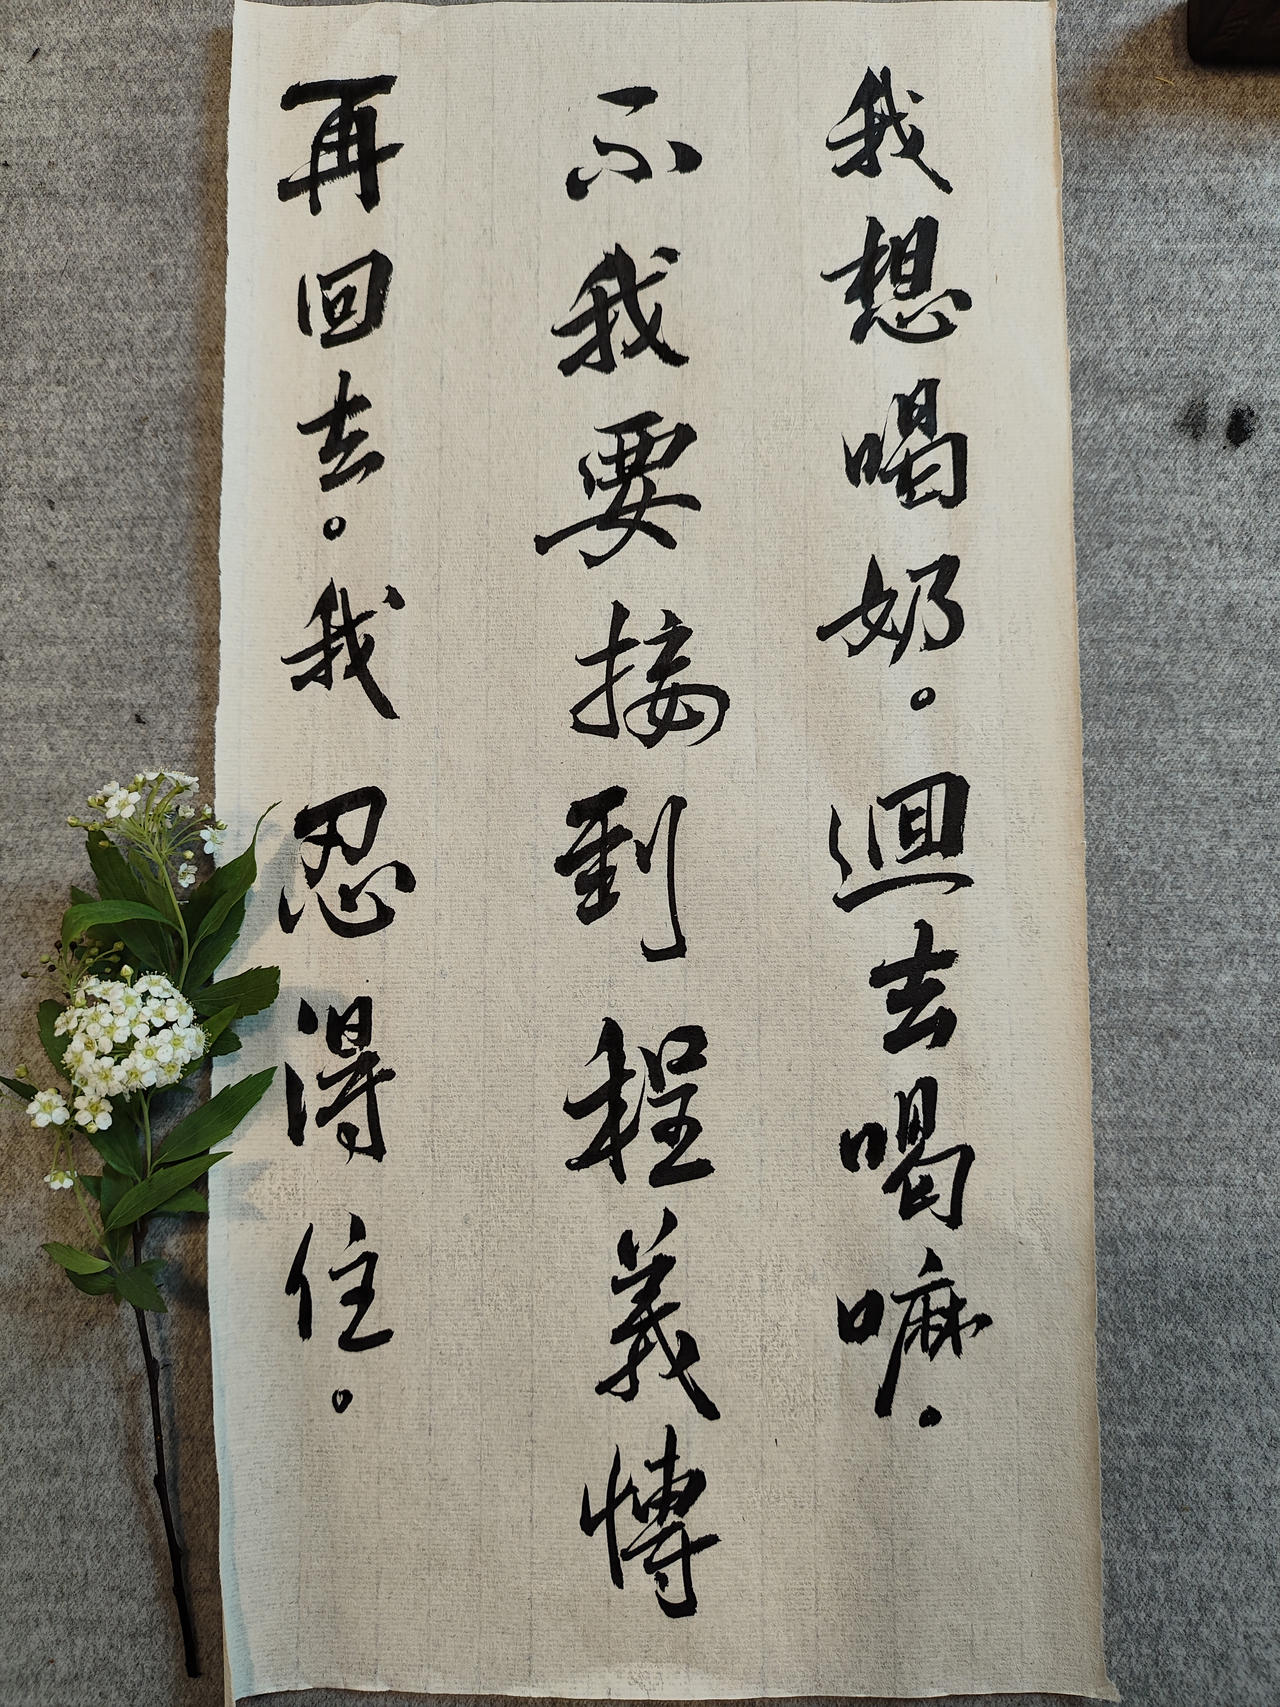 我想喝奶。迴去喝嘛。
不我要接到程義博
再回去。我忍得住。